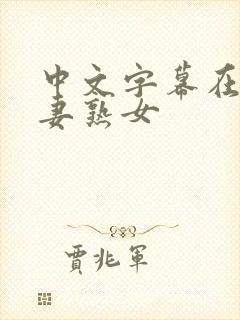 中文字幕在
妻熟女
贾兆军